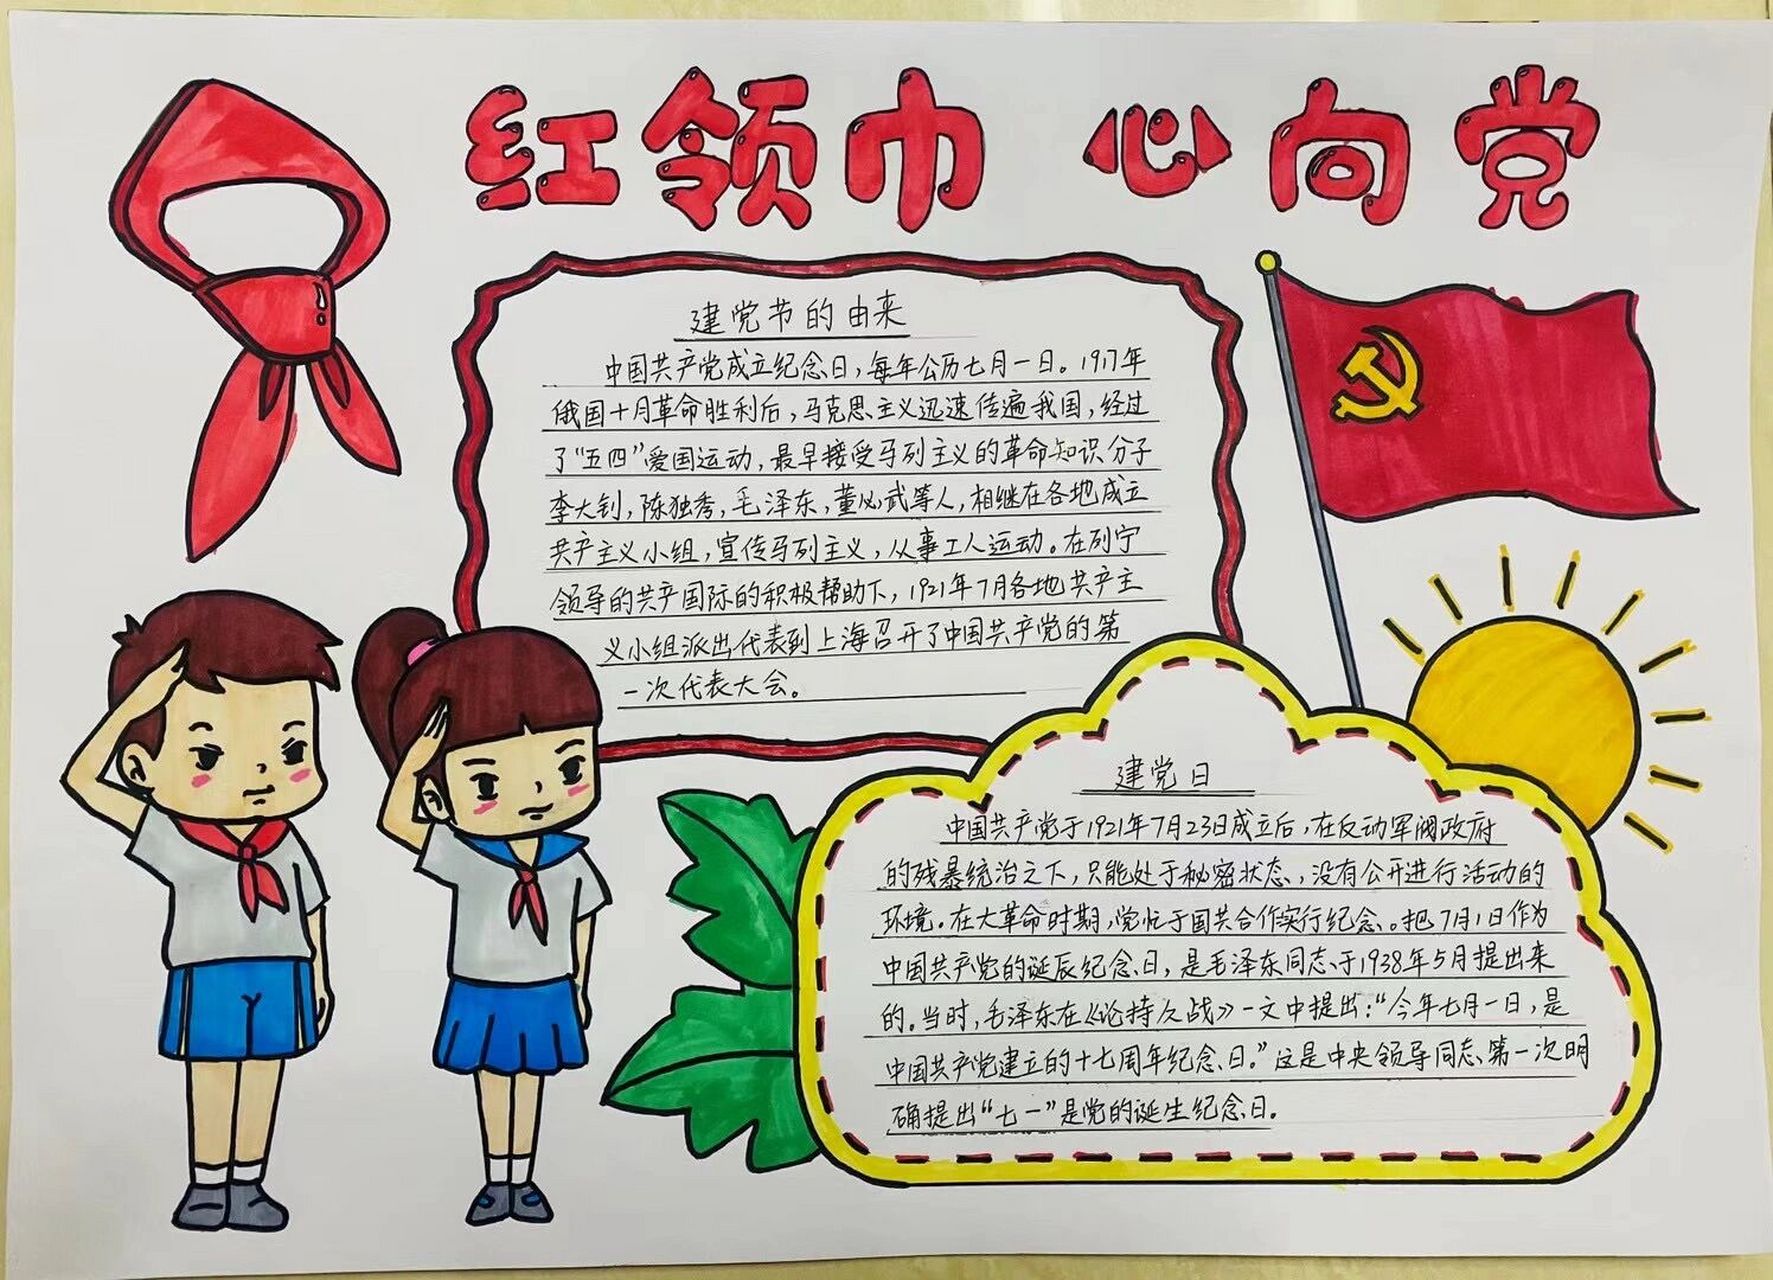 红领巾 心向党
建党节的由来
中国共产党成立纪念日，每年公历七月一日。1917年
俄国十月革命胜利后，马克思主义迅速传遍我国，经过
了“五四”爱国运动，最早接受马列主义的革命知识分子
李大钊，陈独秀，毛泽东，董必武等人，相继在各地成立
共产主义小组，宣传马列主义，从事工人运动。在列宁
领导的共产国际的积极帮助下，1921年7月各地共产主
义小组派出代表到上海召开了中国共产党的第
一次代表大会。
建党日
中国共产党于1921年7月23日成立后，在反动军阀政府
的残暴统治之下，只能处于秘密状态，没有公开进行活动的
环境。在大革命时期，党忙于国共合作实行纪念。把7月1日作为
中国共产党的诞辰纪念日，是毛泽东同志于1938年5月提出来
的。当时，毛泽东在《论持久战》一文中提出：“今年七月一日，是
中国共产党建立的十七周年纪念日。”这是中央领导同志第一次明
确提出“七一”是党的诞生纪念日。